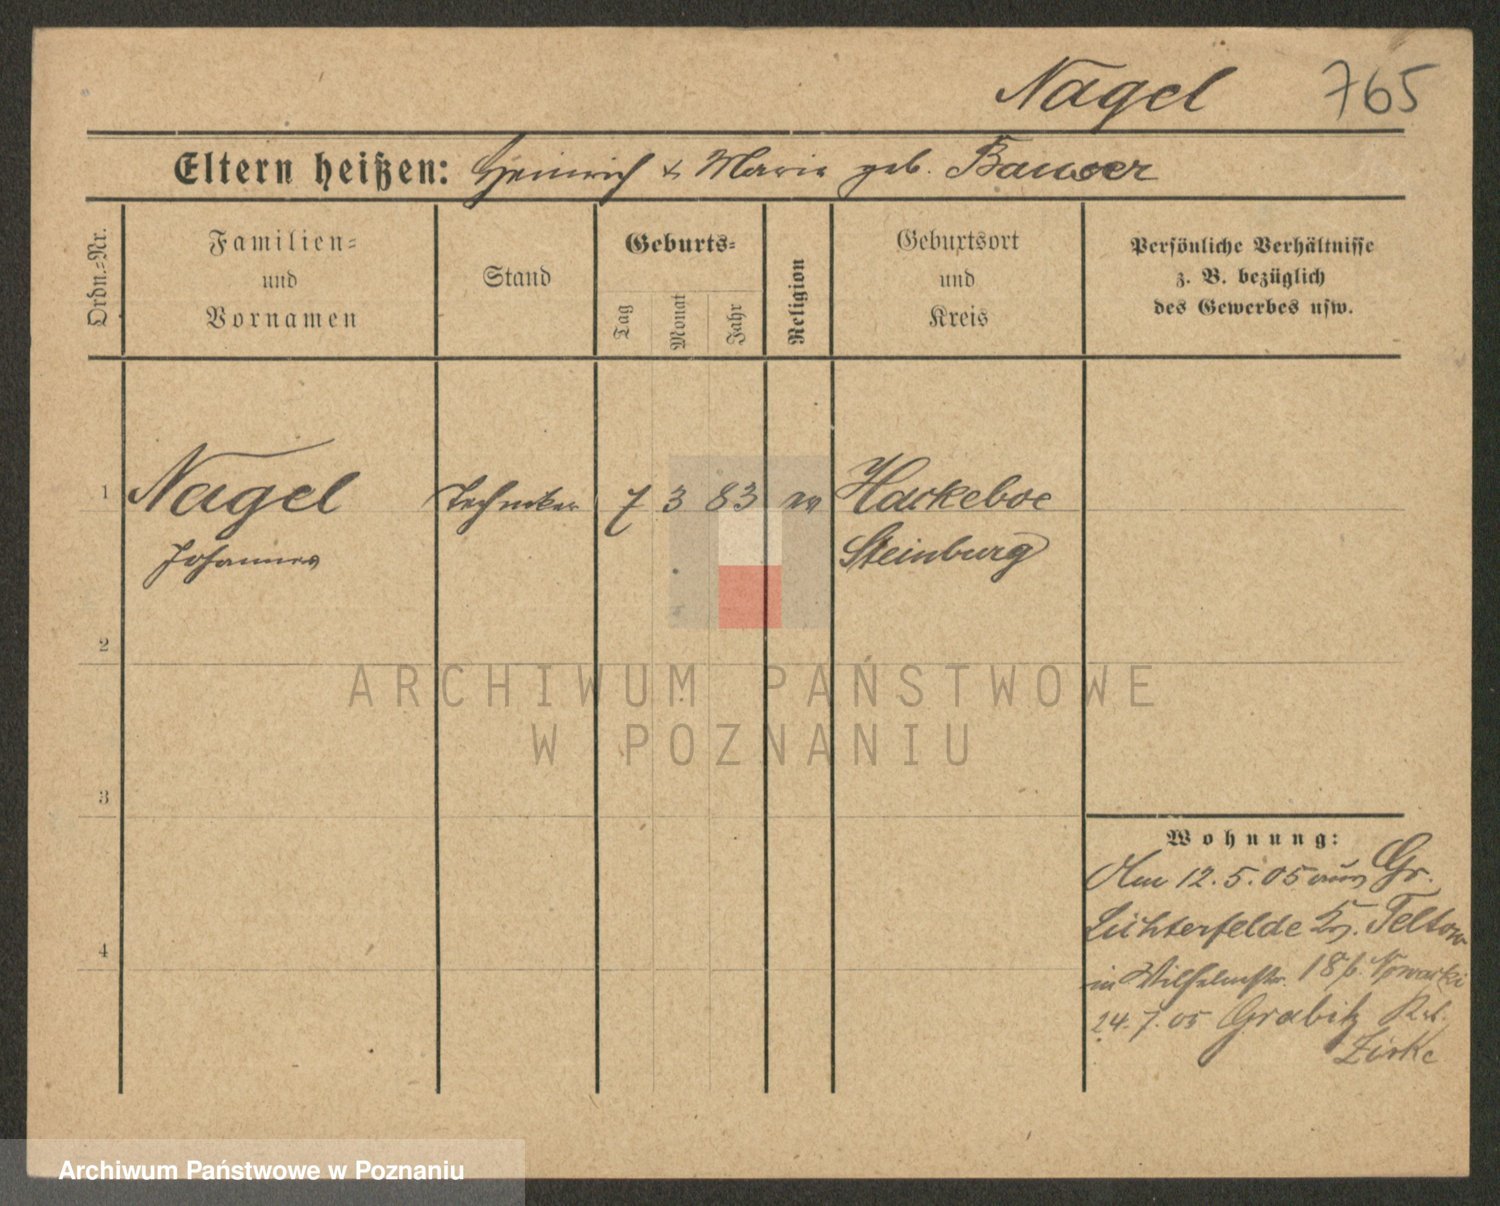 Nagel 765
Eltern heißen: Heinrich & Marie geb. Bauer
Ordn.=Nr.
Familien=
und
Vornamen
Stand
Geburts=
Tag
Monat
Jahr
Religion
Geburtsort
und
Kreis
Persönliche Verhältnisse
z. B. bezüglich
des Gewerbes usw.
1 Nagel Techniker 7 3 83 Hackeboe
Johannes Steinburg
2
ARCHIWUM PAŃSTWOWE
W POZNANIU
3
Wohnung:
Am 12.5.05 aus Gr.
Lichterfelde Kr. Teltow
in Wilhelmstr. 18 b. Nowacki
24.7.05 Grabitz
Zirke
4
Archiwum Państwowe w Poznaniu